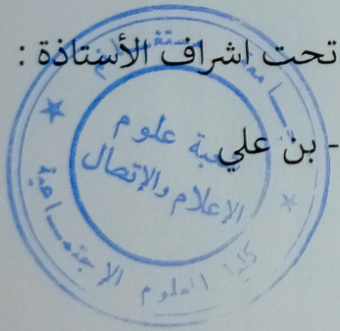 تحت اشراف الأستاذة :
- بن علي
شعبة علوم
الإعلام والإتصال
كلية العلوم الإجتماعية